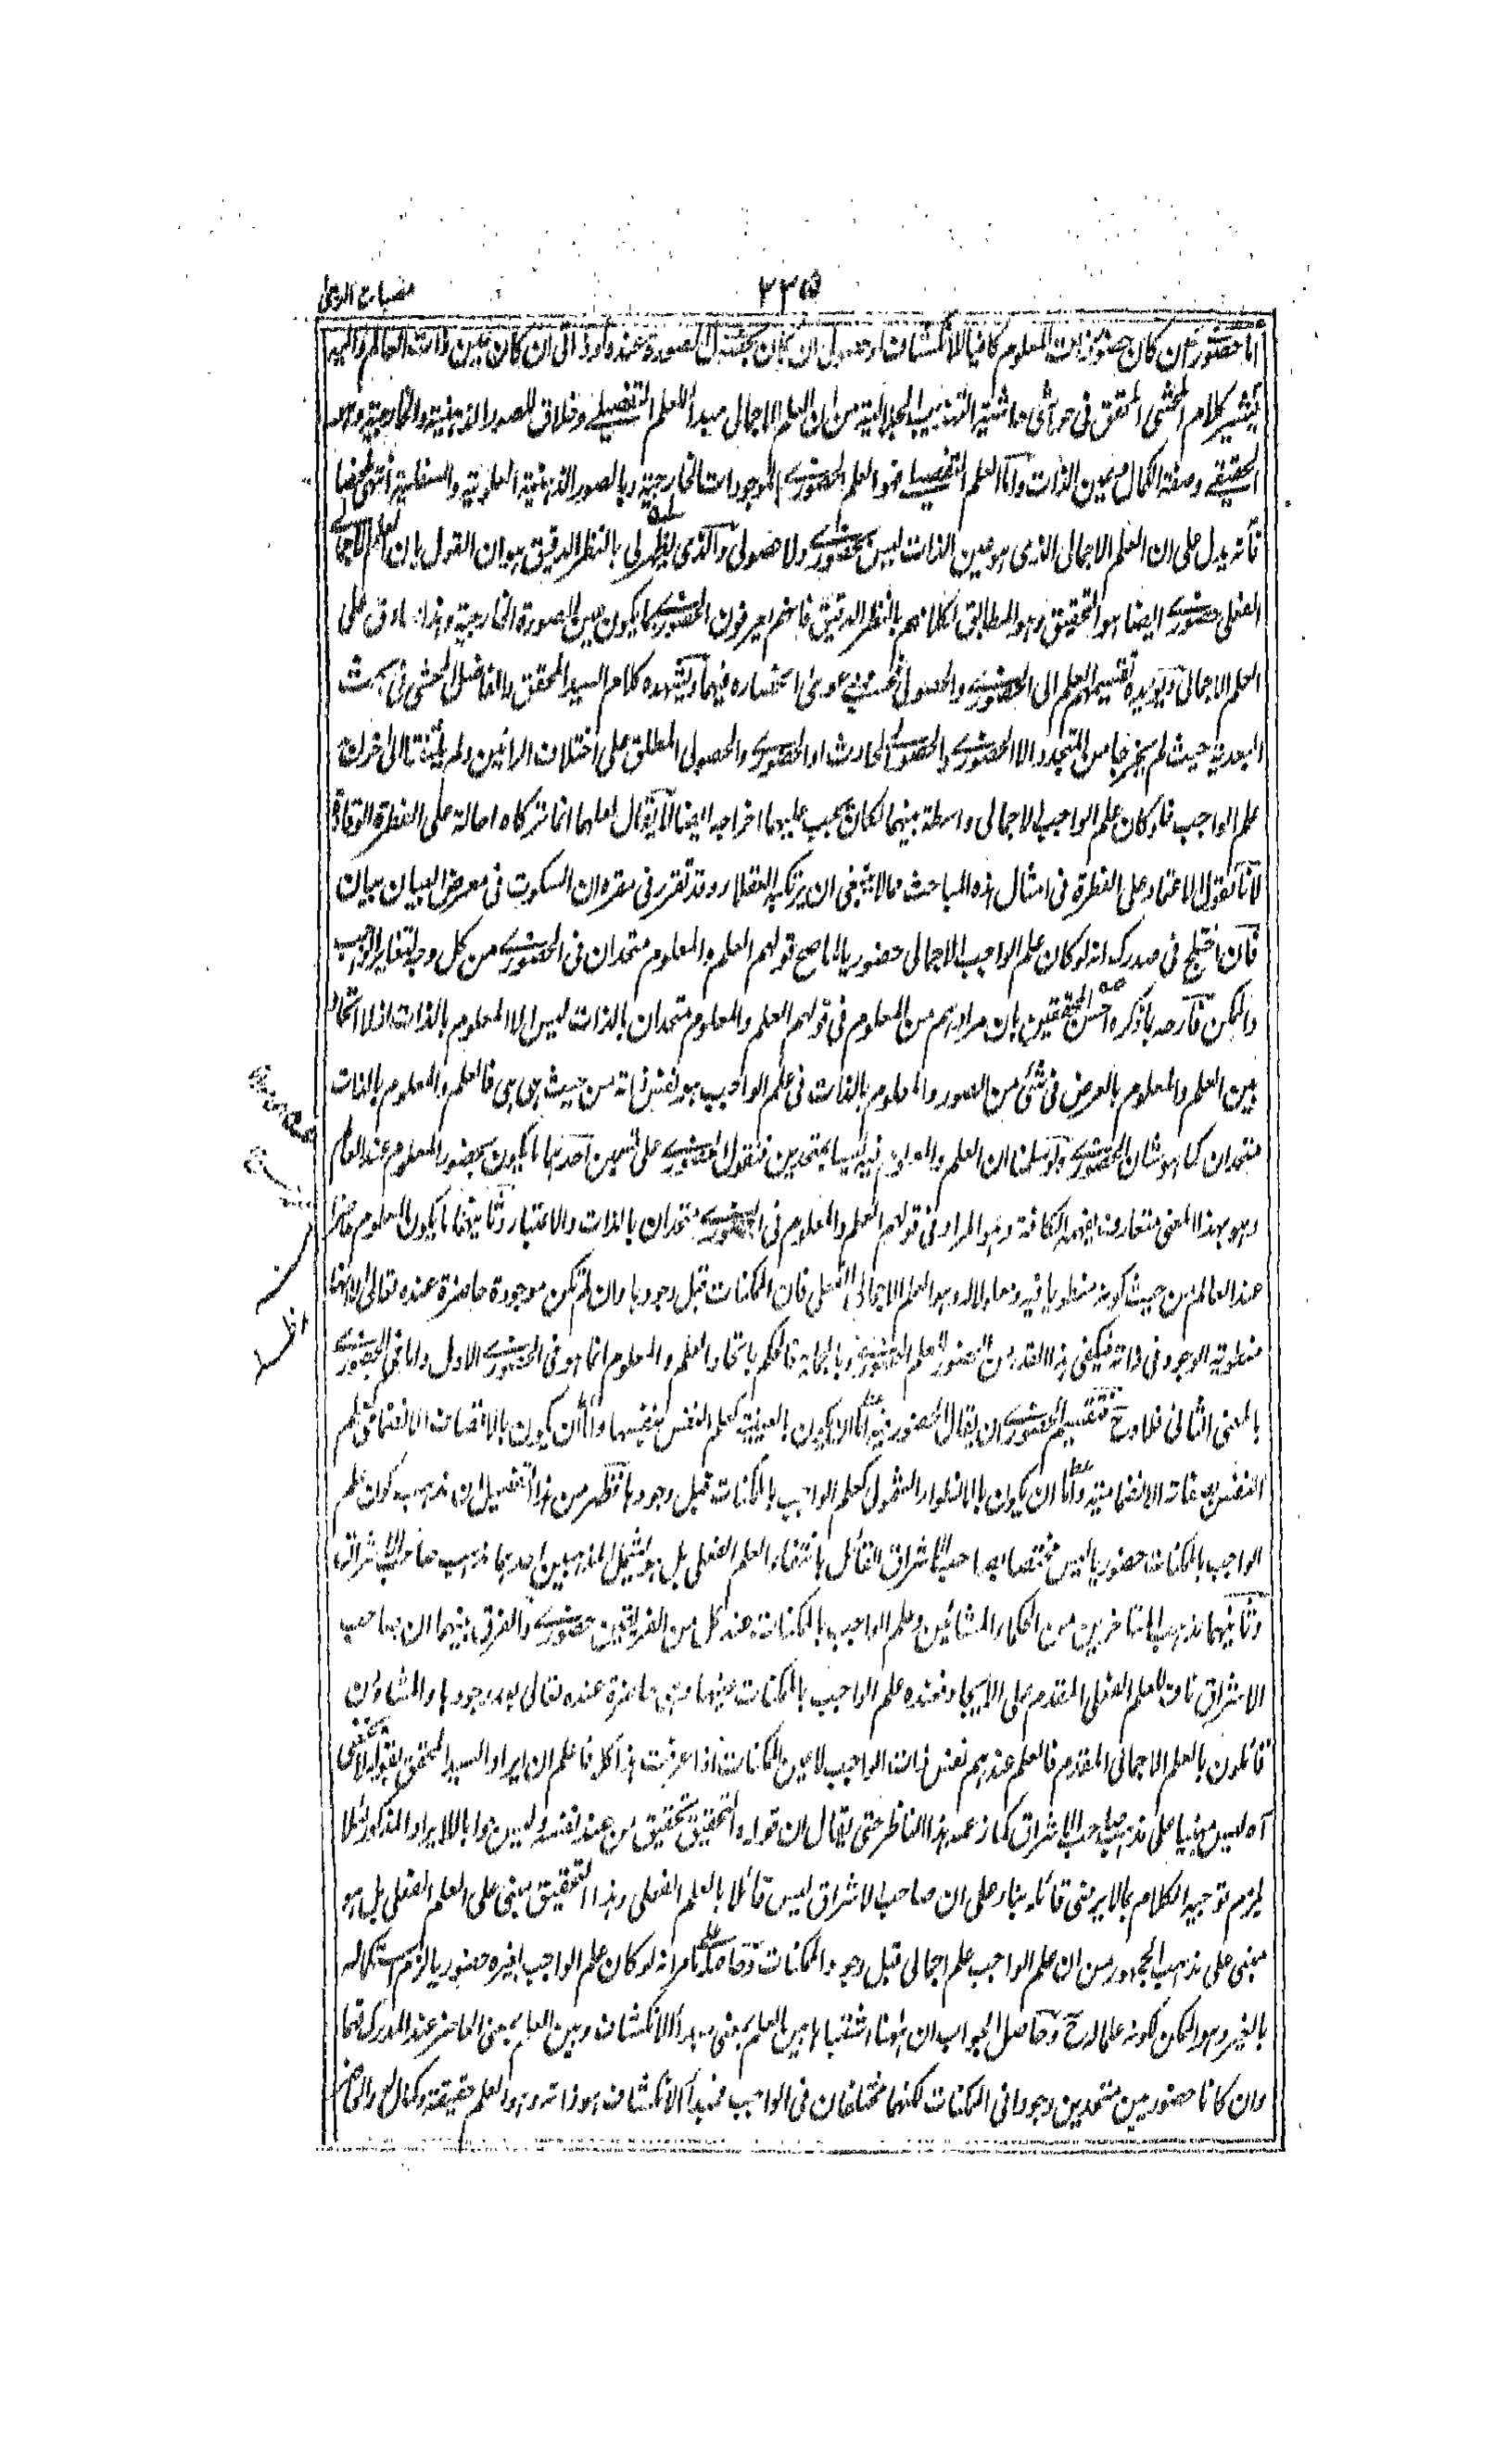 ٢٣٥
اما حضوري ان كان حضور ذات المعلوم كافيا للانكشاف او حصولي ان كان بحصول الصورة عنده او ذاتي ان كان بعين ذات العالم واليه
يشير كلام المحشي المحقق في حواشي حاشية التهذيب الجلالية من ان العلم الاجمالي مبدأ للعلم التفصيلي وخلاق للصور الذهنية والخارجية وهو
الحقيقي وصفة الكمال وعين الذات واما العلم التفصيلي فهو العلم الحضوري بالموجودات الخارجية وبالصور الذهنية العلوية والسفلية انتهى ملخصا
فانه يدل على ان العلم الاجمالي الذي هو عين الذات ليس بحضوري ولا حصولي والذي يظهر لي بالنظر الدقيق هو ان القول بان العلم الاجمالي
الفعلي حضوري ايضا هو التحقيق وهو المطابق لكلماتهم بالنظر الدقيق فانهم يعرفون الحضوري بما يكون عين الصورة الخارجية وهذا صادق على
العلم الاجمالي ويؤيده تقسيمهم العلم الى الحضوري والحصولي فحسب ودعوى انحصاره فيهما ويشهده كلام السيد المحقق والفاضل المحشي في بحث
البعدية حيث لم يخرجا من المتجدد الا الحضوري والحصولي الحادث او الحضوري والحصولي المطلق على اختلاف الرائين ولم يلتفتا الى اخراج
علم الواجب فلو كان علم الواجب الاجمالي واسطة بينهما لكان يجب عليهما اخراجه ايضا لا يقال لعلهما انما تركاه احالة على الفطرة الوقادة
لانا نقول الاعتماد على الفطرة في امثال هذه المباحث مما لا ينبغي ان يرتكبه العقلاء وقد تقرر في مقره ان السكوت في معرض البيان بيان
فان اختلج في صدرك انه لو كان علم الواجب الاجمالي حضوريا لما صح قولهم العلم والمعلوم متحدان في الحضوري من كل وجه لتغاير الواجب
والممكن فازحه بما ذكره احسن المحققين بان مرادهم من المعلوم في قولهم العلم والمعلوم متحدان بالذات ليس الا المعلوم بالذات اذ لا اتحاد
بين العلم والمعلوم بالعرض في شيء من الصور والمعلوم بالذات في علم الواجب هو نفس ذاته من حيث هي هي فالعلم والمعلوم بالذات
متحدان كما هو شان الحضوري ولو سلمنا ان العلم والمعلوم فيه ليسا بمتحدين فنقول الحضوري على قسمين احدهما ما يكون بحضور المعلوم عند العالم
وهو بهذا المعنى متعارف يفهمه الكافة وهو المراد في قولهم العلم والمعلوم في الحضوري متحدان بالذات والاعتبار وثانيهما ما يكون المعلوم حاضرا
عند العالم من حيث كونه منطويا فيه ومعلولا له وهو العلم الاجمالي الفعلي فان الممكنات قبل وجودها وان لم تكن موجودة حاضرة عنده تعالى لكنها
منطوية الوجود في ذاته فيكفي هذا القدر من الحضور للعلم الحضوري وبالجملة فالحكم باتحاد العلم والمعلوم انما هو في الحضوري الاول واما في الحضوري
بالمعنى الثاني فلا وح تقسيم الحضوري ان يقال الحضور فيه اما ان يكون بالعينية كعلم النفس بنفسها واما ان يكون بالاتصاف الانضمامي كعلم
النفس بصفاته الانضمامية واما ان يكون بالانطواء والشمول كعلم الواجب بالممكنات قبل وجودها فظهر من هذا التفصيل ان مذهب كون علم
الواجب بالممكنات حضوريا ليس مختصا بصاحب الاشراق القائل بانتفاء العلم الفعلي بل هو يشمل المذهبين احدهما مذهب صاحب الاشراق
وثانيهما مذهب المتاخرين من الحكماء المشائين وعلم الواجب بالممكنات عند كل من الفريقين حضوري والفرق بينهما ان صاحب
الاشراق ناف للعلم الفعلي المقدم على الايجاد فعنده علم الواجب بالممكنات عينها وهي حاضرة عنده تعالى بعد وجودها والمشاؤن
قائلون بالعلم الاجمالي المقدم فالعلم عندهم نفس ذات الواجب لا عين الممكنات اذا عرفت هذا كله فاعلم ان ايراد السيد المحقق بقوله لا يخفى
آه ليس مبنيا على مذهب صاحب الاشراق كما زعمه هذا الناظر حتى يقال ان قوله والتحقيق تحقيق من عند نفسه وليس جوابا للايراد المذكور لئلا
يلزم توجيه الكلام بما لا يرضى قائله بناء على ان صاحب الاشراق ليس قائلا بالعلم الفعلي وهذا التحقيق مبني على العلم الفعلي بل هو
مبني على مذهب الجمهور من ان علم الواجب علم اجمالي قبل وجود الممكنات وحاصله ما مر انه لو كان علم الواجب بغيره حضوريا لزم استكماله
بالغير وهو الممكن لكونه علما له وح وحاصل الجواب ان ههنا اشتباها بين العلم بمعنى مبدأ الانكشاف وبين العلم بمعنى الحاضر عند المدرك فهما
وان كانا حضوريين متحدين وجودا في الممكنات لكنهما مختلفان في الواجب فمبدأ الانكشاف هو ذاته وهو العلم حقيقة وكمال له والحاضر